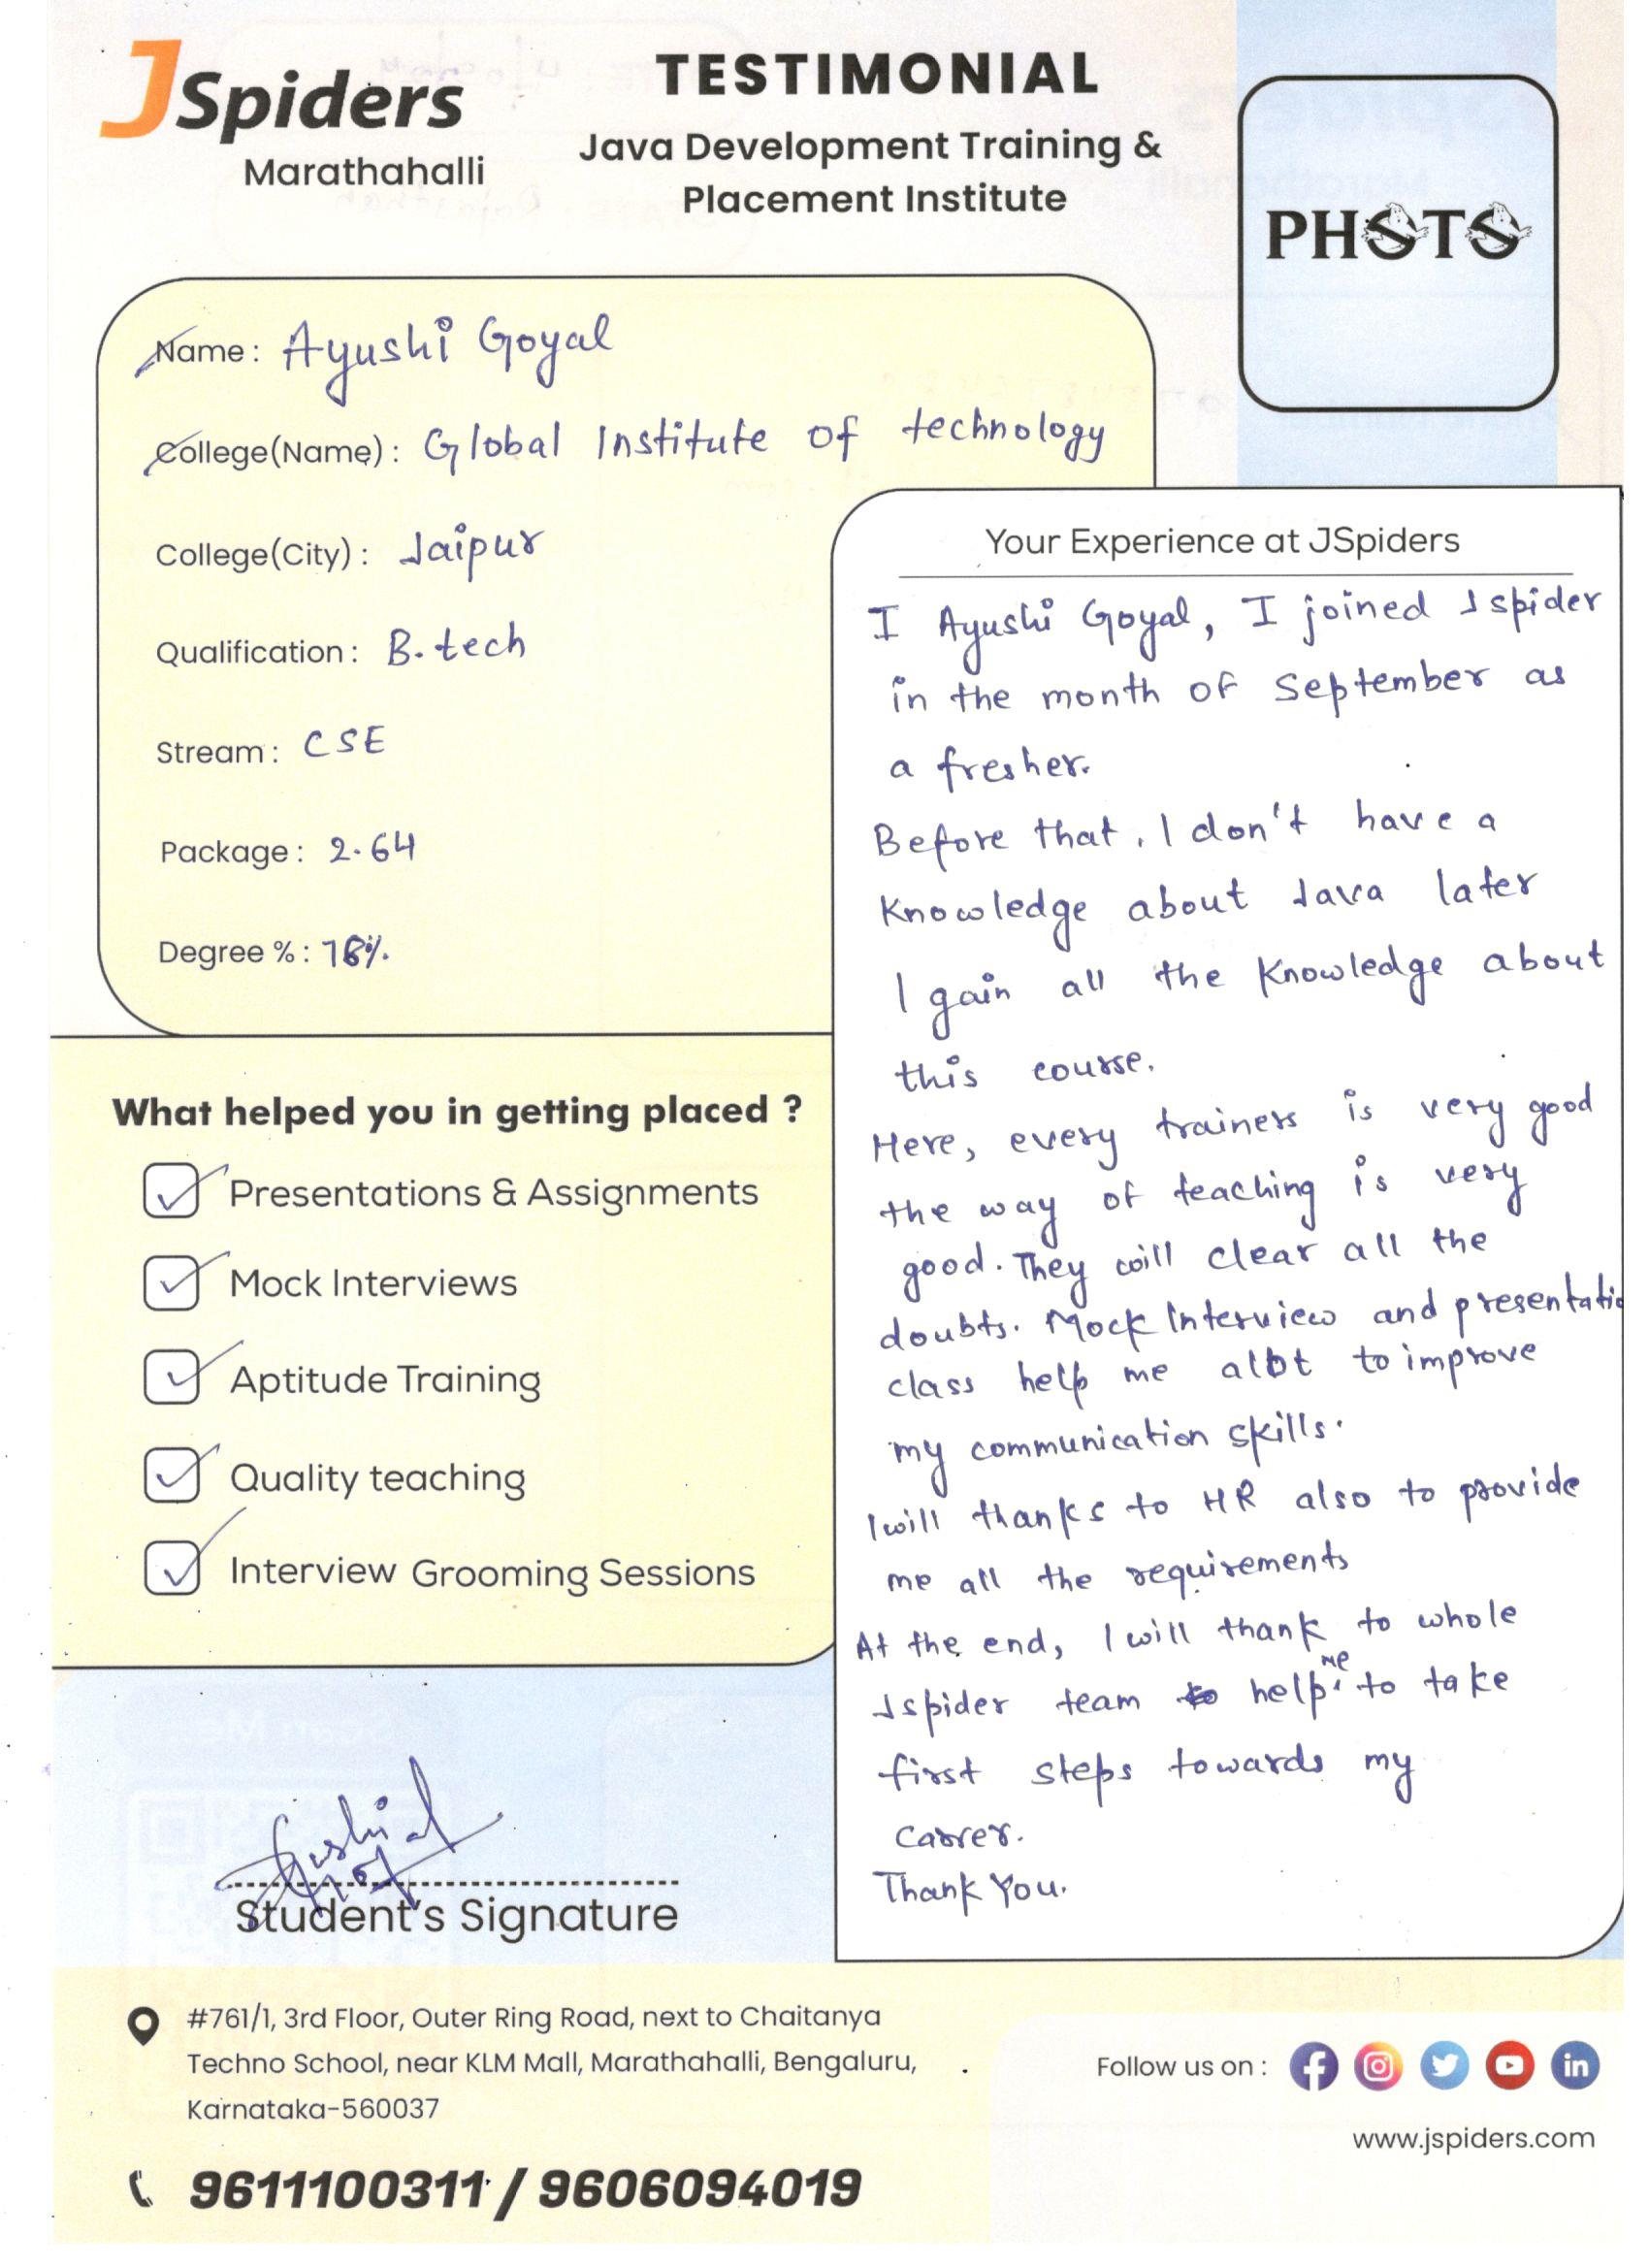 JSpiders
Marathahalli
TESTIMONIAL
Java Development Training &
Placement Institute
PHOTO
Name : Ayushi Goyal
College(Name) : Global Institute of technology
College(City) : Jaipur
Qualification : B.tech
Stream : CSE
Package : 2.64
Degree % : 78%
What helped you in getting placed ?
Presentations & Assignments
Mock Interviews
Aptitude Training
Quality teaching
Interview Grooming Sessions
Student's Signature
Your Experience at JSpiders
I Ayushi Goyal, I joined Jspider
in the month of September as
a fresher.
Before that, I don't have a
Knowledge about Java later
I gain all the Knowledge about
this course.
Here, every trainers is very good
the way of teaching is very
good. They will clear all the
doubts. Mock Interview and presentatio
class help me alot to improve
my communication skills.
I will thanks to HR also to provide
me all the requirements
At the end, I will thank to whole
Jspider team to help me to take
first steps towards my
Carrer.
Thank You.
#761/1, 3rd Floor, Outer Ring Road, next to Chaitanya
Techno School, near KLM Mall, Marathahalli, Bengaluru,
Karnataka-560037
9611100311 / 9606094019
Follow us on :
www.jspiders.com